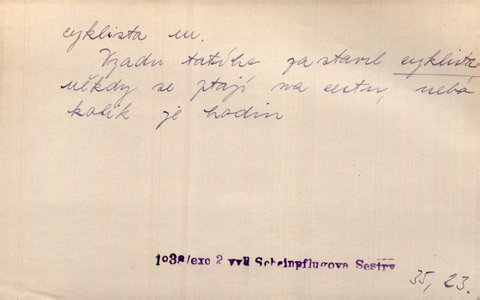 cyklista m.
Vzadu tatího zastavil cyklista
někdy se ptají na cestu, nebo
kolik je hodin
1938/exc 2 vyd Scheinpflugova Sestry
35, 23.